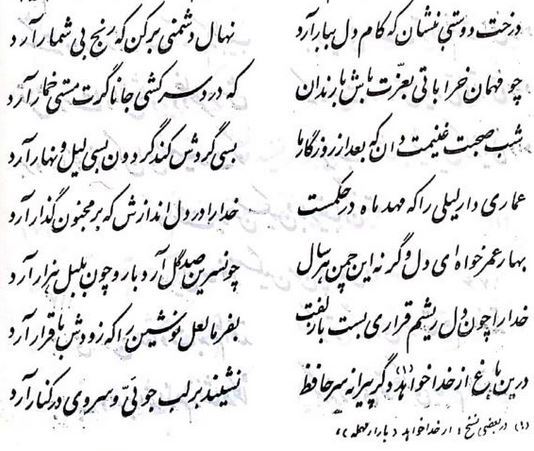 درخت دوستی بنشان که کام دل ببار آرد نهال دشمنی برکن که رنج بی شمار آرد
چو مهمان خراباتی بعزّت باش با رندان که درد سر کشی جانا گرت مستی خمار آرد
شب صحبت غنیمت دان که بعد از روزگار ما بسی گردش کند گردون بسی لیل و نهار آرد
عماری دار لیلی را که مهد ماه در حکمست خدا را در دل اندازش که بر مجنون گذار آرد
بهار عمر خواه ای دل وگرنه این چمن هر سال چو نسرین صد گل آرد بار و چون بلبل هزار آرد
خدا را چون دل ریشم قراری بست با زلفت بفرما لعل نوشین را که زودش با قرار آرد
درین باغ از خدا خواهد (۱) دگر پیرانه سر حافظ نشیند بر لب جوئی و سروی در کنار آرد
(۱) در بعضی نسخ : ار خدا خواهد « با راء مهمله »